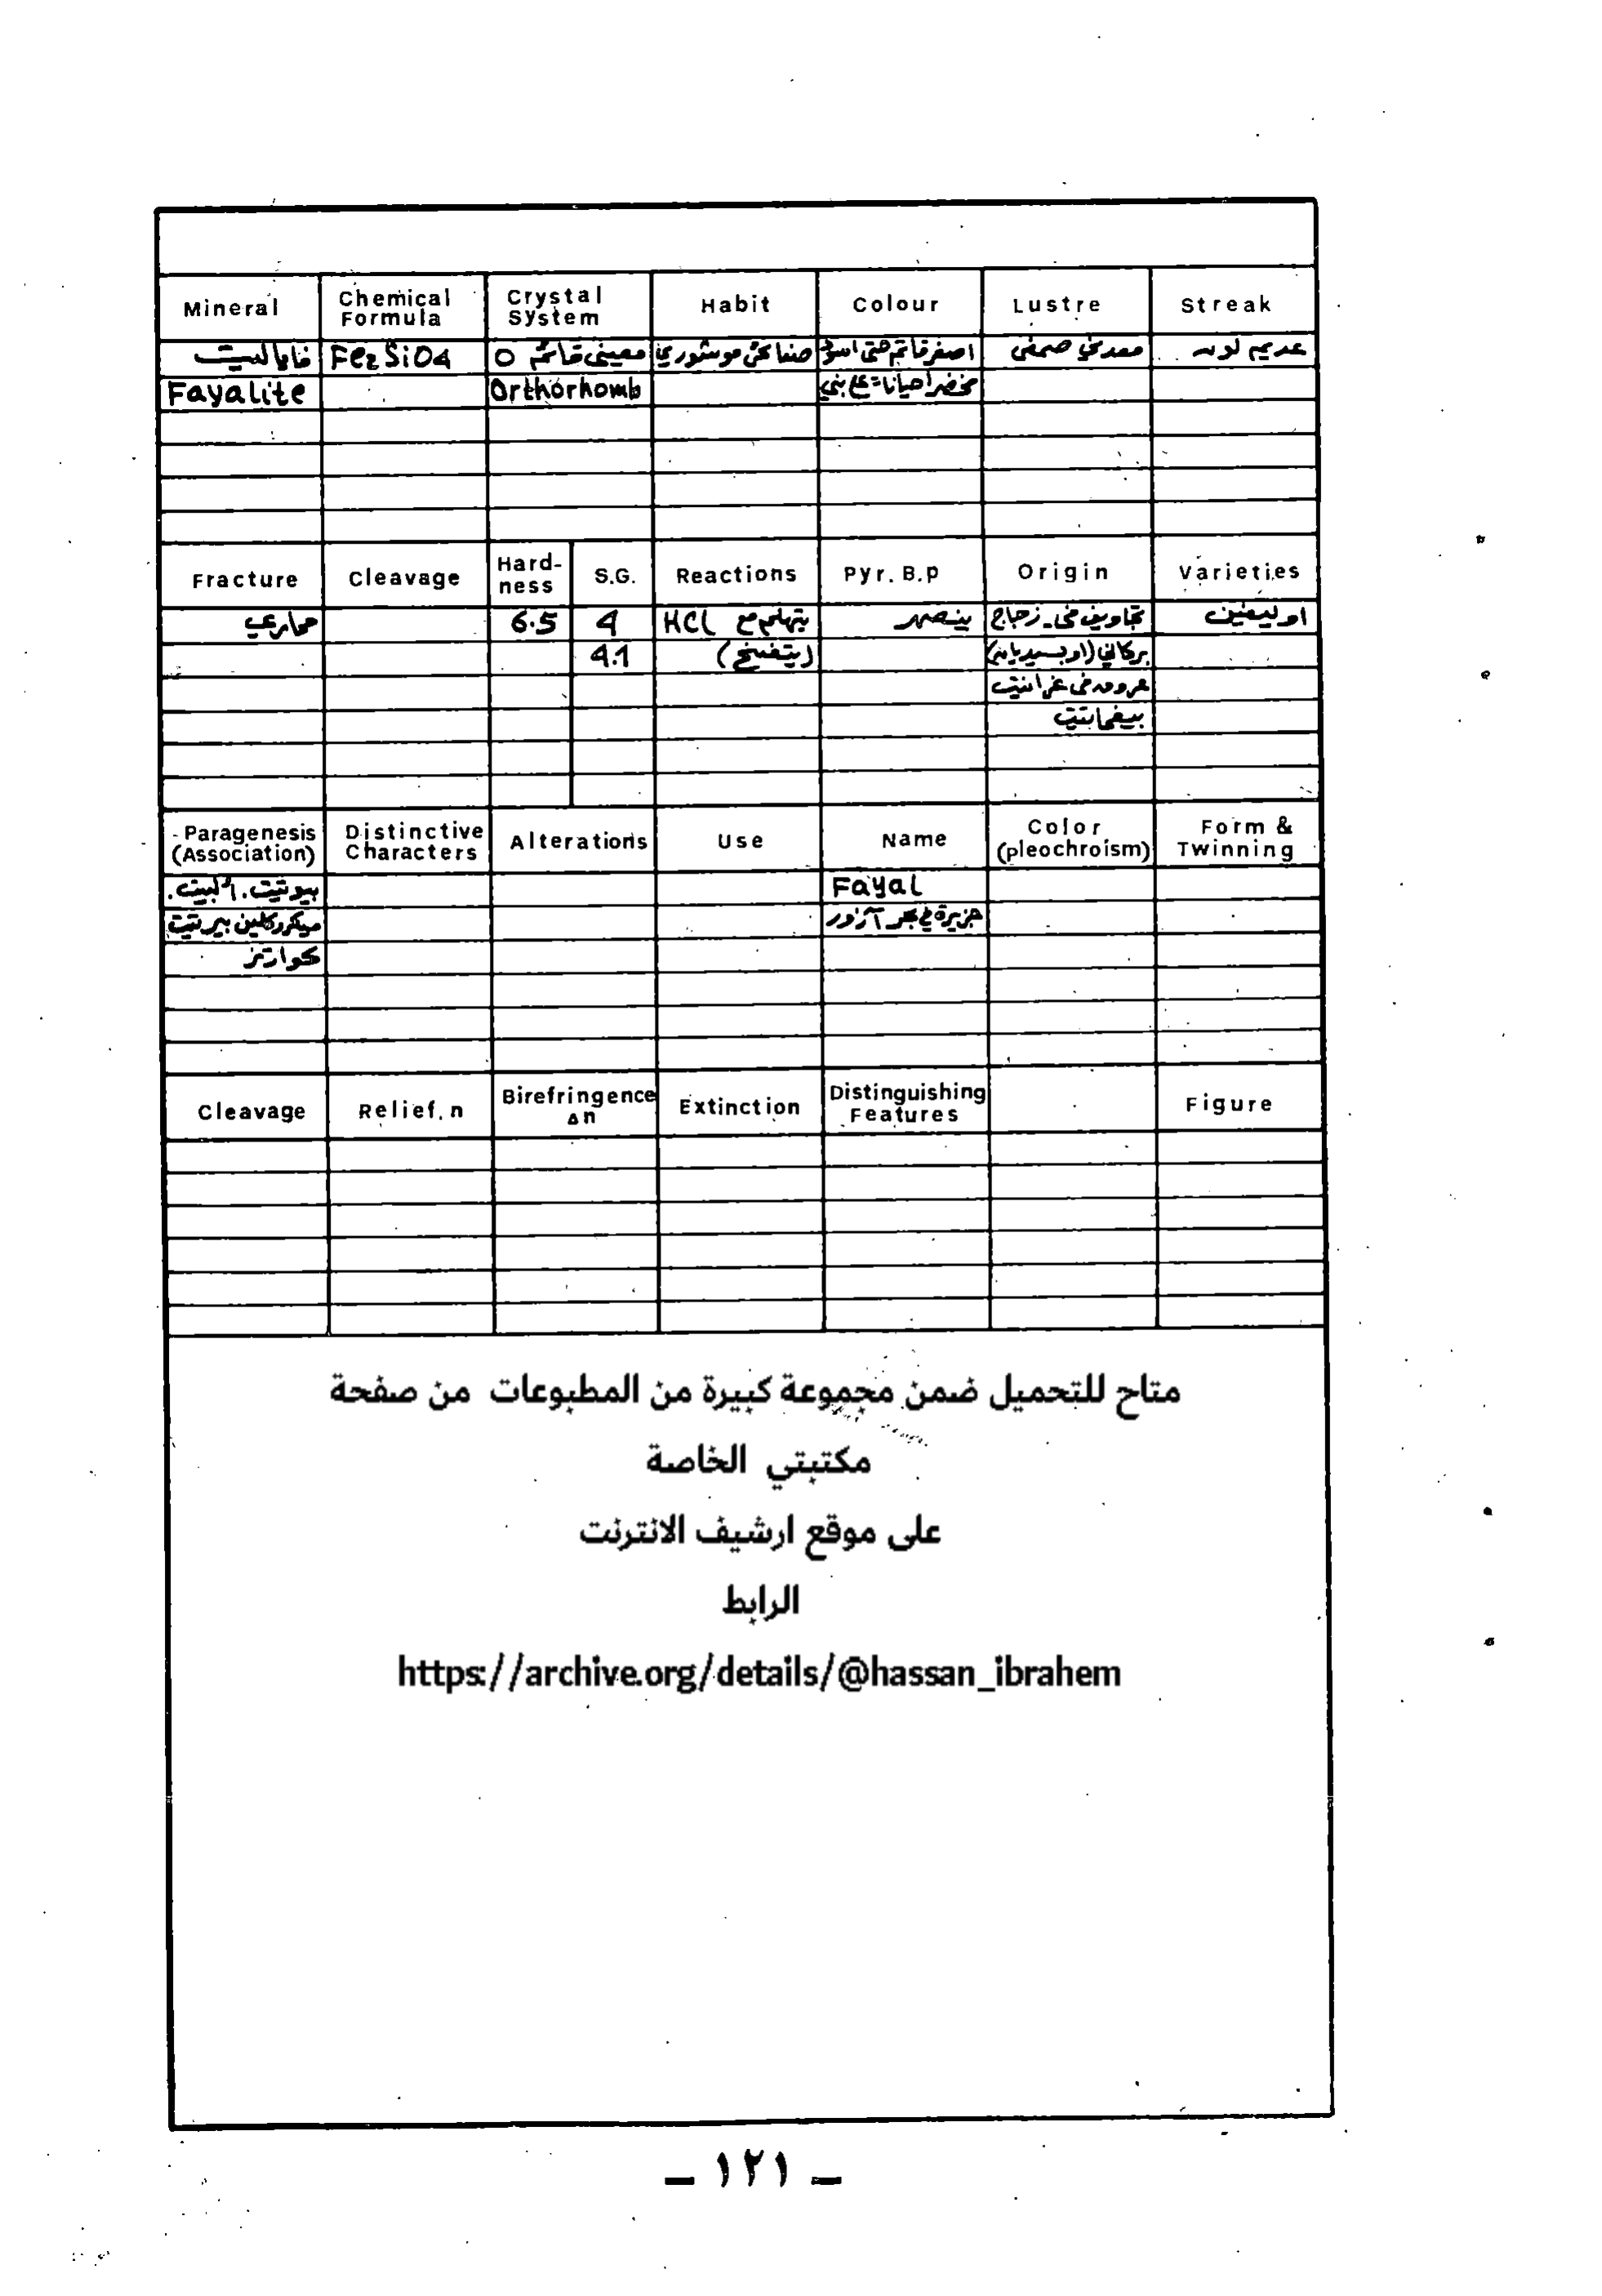 Mineral Chemical Formula Crystal System Habit Colour Lustre Streak
فايالييت Fe2SiO4 معيني قائم O صفائحي موشوري اصفر قاتم حتى اسود معدني صمغي عديم لون
Fayalite Orthorhomb مخضر احيانا بني
Fracture Cleavage Hard-ness S.G. Reactions Pyr. B.p Origin Varieties
محاري 6.5 4 يتهلم مع HCl ينصهر تجاويف في زجاج اوليفين
4.1 بركاني (اوبسيديان)
عروق في غرانيت
بيغماتيت
Paragenesis (Association) Distinctive Characters Alterations Use Name Color (pleochroism) Form & Twinning
بيوتيت. البيت. Fayal
ميكروكلين بيرتيت جزيرة في بحر آزور
كوارتز
Cleavage Relief. n Birefringence Δn Extinction Distinguishing Features Figure
متاح للتحميل ضمن مجموعة كبيرة من المطبوعات من صفحة
مكتبتي الخاصة
على موقع ارشيف الانترنت
الرابط
https://archive.org/details/@hassan_ibrahem
– ١٢١ –